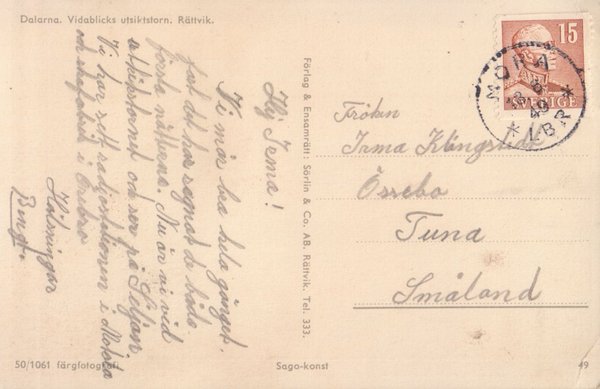 Dalarna. Vidablicks utsiktstorn. Rättvik.
Hej Irma!
Vi mår bra hela gänget
fast det har regnat de båda
första nätterna. Nu är vi vid
utsiktstornet och ser på Siljan.
Vi har sett radiostationen i Motala
och skofabrik i Örebro
Hälsningar
Bengt.
Förlag & Ensamrätt: Sörlin & Co. AB. Rättvik. Tel. 333.
15
SVERIGE
MORA
LBR
49
Fröken
Irma Klingstedt
Össebo
Tuna
Småland
50/1061 färgfotografi
Sago-konst
49